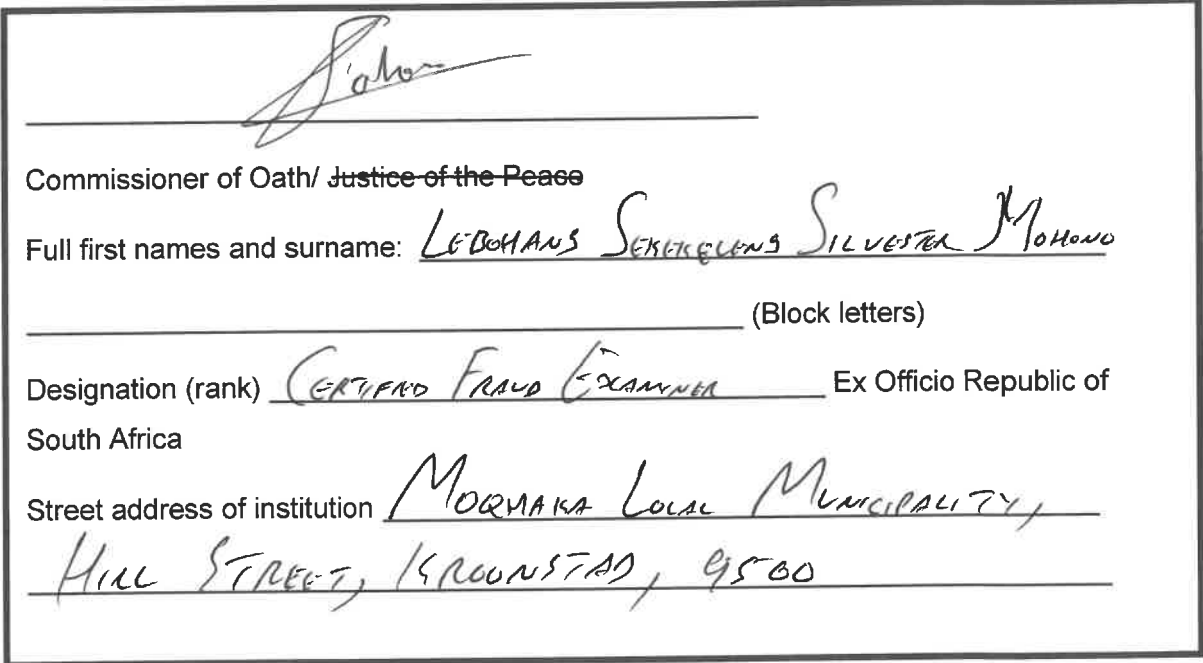 Commissioner of Oath/ Justice of the Peace
Full first names and surname: LEBOHANG SEKEKELENG SILVESTER MOHONO
(Block letters)
Designation (rank) CERTIFIED FRAUD EXAMINER Ex Officio Republic of
South Africa
Street address of institution MOQHAKA LOCAL MUNICIPALITY,
HILL STREET, KROONSTAD, 9500